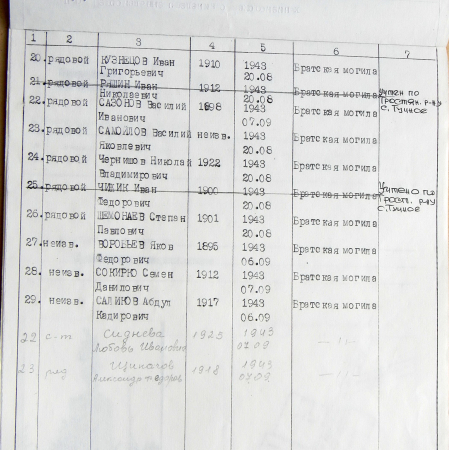 1 2 3 4 5 6 7
20. рядовой КУЗНЕЦОВ Иван 1910 1943 Братская могила
Григорьевич 20.08
21. рядовой РЯШИН Иван 1912 1943 Братская могила учтен по
Николаевич 20.08 Тростян. р-ну
22. рядовой САЗОНОВ Василий 1898 1943 Братская могила с. Тучное
Иванович 07.09
23. рядовой САМОЙЛОВ Василий неизв. 1943 Братская могила
Яковлевич 20.08
24. рядовой Чернишов Николай 1922 1943 Братская могила
Владимирович 20.08
25. рядовой ЧИЖИК Иван 1900 1943 Братская могила Учтено по
Федорович 20.08 Трост. р-ну
26. рядовой Степан 1901 1943 Братская могила с. Тучное
Павлович 20.08
27. неизв. ВОРОБЬЕВ Яков 1896 1943 Братская могила
Федорович 06.09
28. неизв. СОКИРКО Семен 1912 1943 Братская могила
Данилович 07.09
29. неизв. САЛИКОВ Абдул 1917 1943 Братская могила
Кадирович 06.09
22 с-т Сиднева 1925 1943 — 11 —
Любовь Ивановна 07.09
23 ряд Щипачов 1918 1943 — 11 —
Александр 07.09